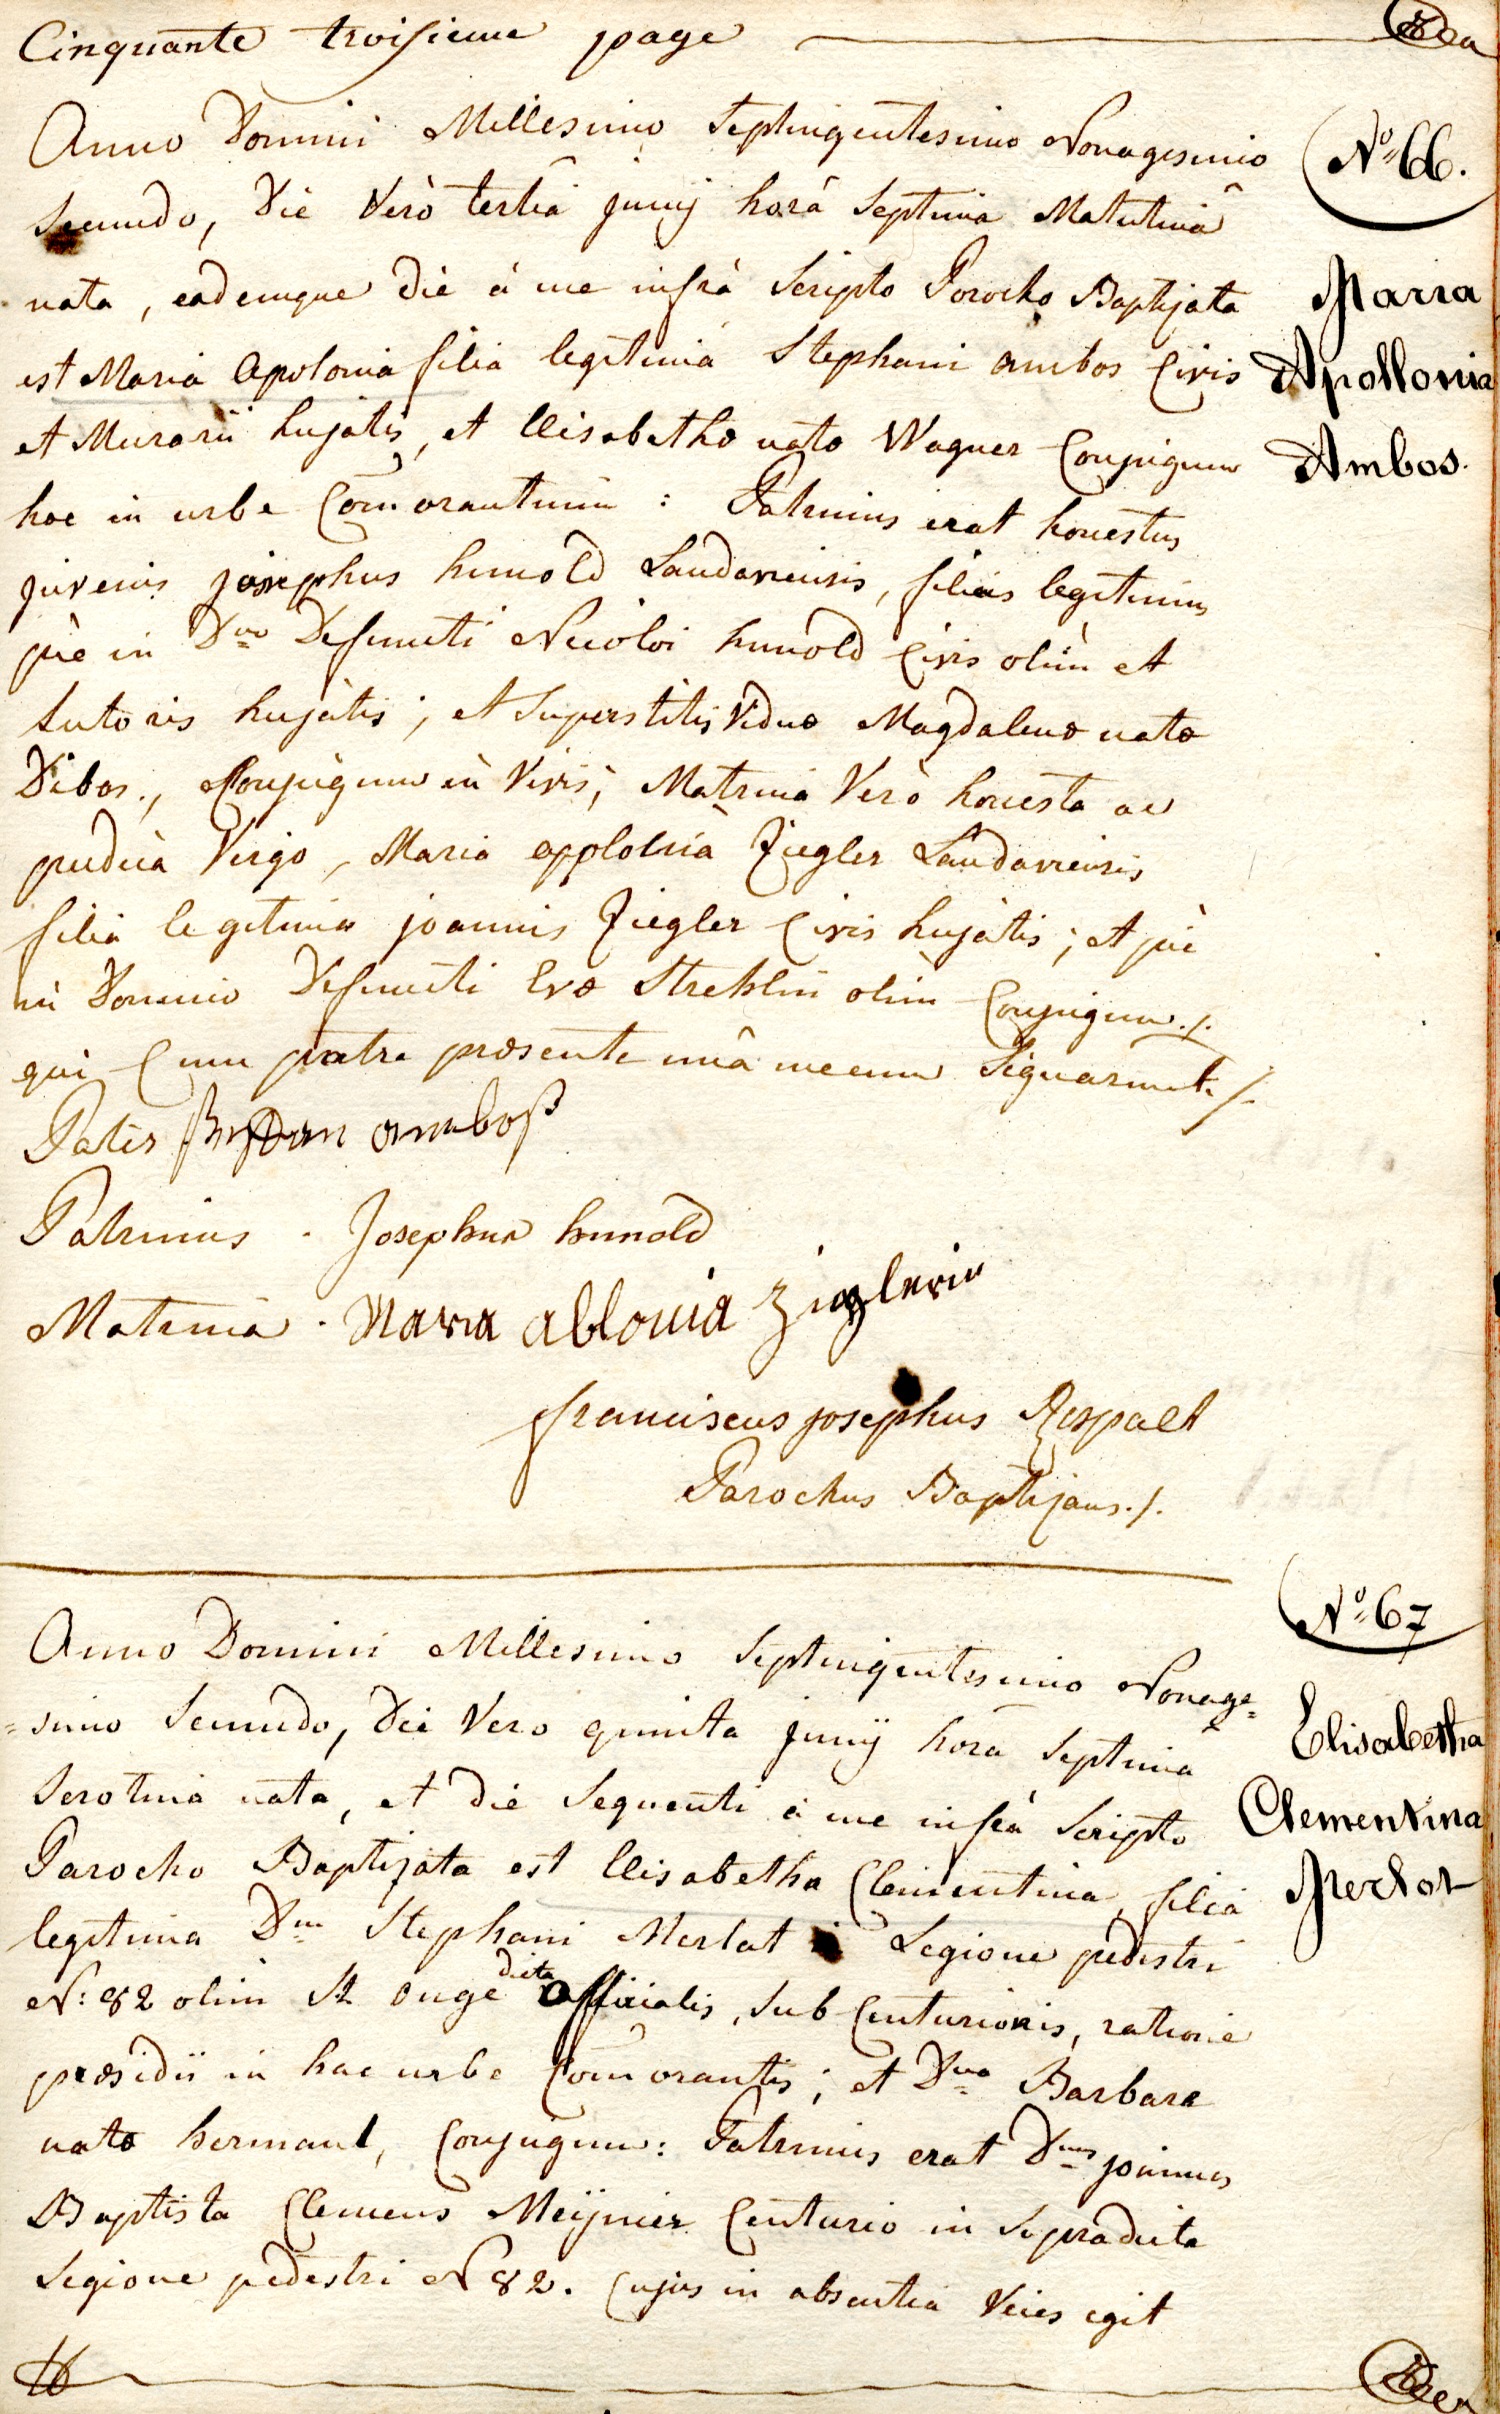 Cinquante troisieme page
Anno Domini Millesimo Septingentesimo Nonagesimo
Secundo, Die Verò tertiâ junij horâ Septima Matutinâ
nata, eademque die à me infrà Scripto Parocho Baptizata
est Maria Apolonia filia legitima Stephani Ambos Civis
et Murarii hujatis, et Elisabethæ natæ Wagner Conjugum
hac in urbe Com̄orantium : Patrinus erat honestus
juvenis josephus hunold Landaviensis, filius legitimus
piè in Dno Defuncti Nicolai hunold Civis olim et
Sutoris hujatis ; et Superstitis Viduæ Magdalenæ natæ
Dibos., Conjugum in Vivis; Matrina Verò honesta ac
pudica Virgo, Maria applolnia Ziegler Landaviensis
filia legitima joannis Ziegler Civis hujatis ; et piè
in Domino Defuncti Evæ Strehlin olim Conjugum ./.
qui Cum patre præsente unâ mecum Signarunt. /.
Pater Stephan amboß
Patrinus . Josephus hunold
Matrina . Maria ablonia Zieglerin
franciscus josephus Respalt
Parochus Baptizans ./.
No 66.
Maria
Apollonia
Ambos.
Anno Domini Millesimo Septingentesimo Nonage=
=simo Secundo, Die Vero quinta junij hora Septima
Serotina nata, et die Sequenti à me infrà Scripto
Parocho Baptizata est Elisabetha Clementina filia
legitima Dni Stephani Merlat Legione pedestri
N: 82 olim St onge dicta Officialis, Sub Centurionis, ratione
præsidii in hac urbe Com̄orantis ; et Dna Barbara
natæ hermant, Conjugum : Patrinus erat Dnus joannes
Baptista Clemens Meijnier Centurio in Supradicta
Legione pedestri N 82. Cujus in absentia Vices egit
No 67
Elisabetha
Clementina
Merlot